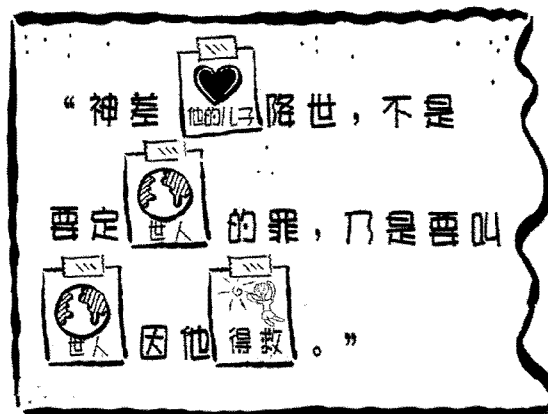 “神差他的儿子降世，不是
要定世人的罪，乃是要叫
世人因他得救。”